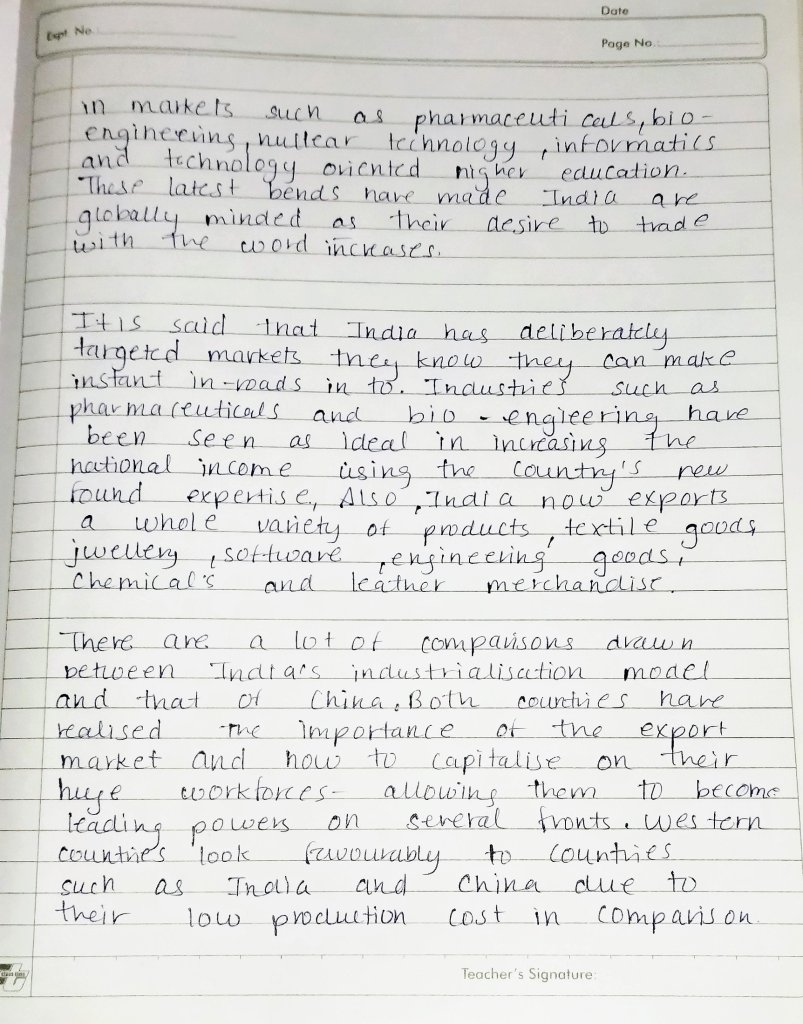 Date
Expt. No.
Page No.
in markets such as pharmaceuti cals, bio-
engineering, nullear technology, informatics
and technology oriented higher education.
These latest bends have made India are
globally minded as their desire to trade
with the word increases.
It is said that India has deliberately
targeted markets they know they can make
instant in-roads in to. Industries such as
pharmaceuticals and bio - engieering have
been seen as ideal in increasing the
national income using the country's new
found expertise, Also, India now exports
a whole variety of products, textile goods,
jwellery, software, engineering goods,
Chemical's and leather merchandise.
There are a lot of comparisons drawn
between India's industrialisation model
and that of China. Both countries have
realised the importance of the export
market and how to capitalise on their
huge workforces- allowing them to become
leading powers on several fronts. Western
countries look favourably to countries
such as India and China due to
their low production cost in comparison.
Teacher's Signature: